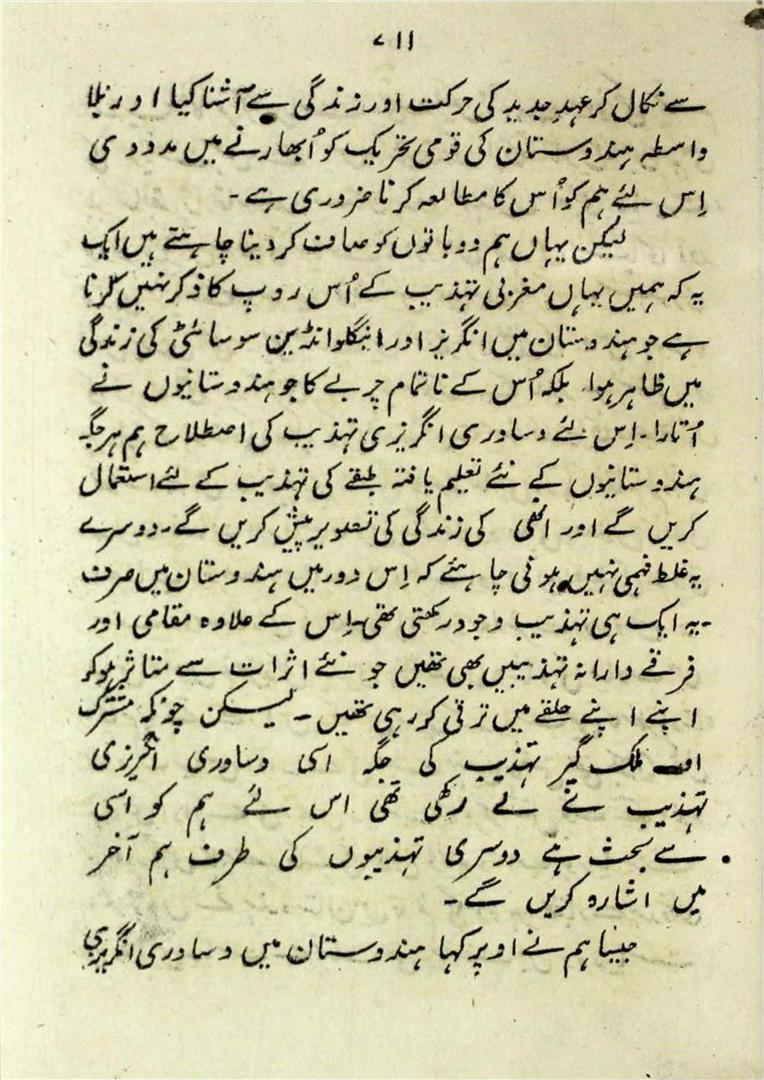 ۷۱۱
سے نکال کر عہدِ جدید کی حرکت اور زندگی سے آشنا کیا اور بلا
واسطہ ہندوستان کی قومی تحریک کو اُبھارنے میں مدد دی
اِس لئے ہم کو اُس کا مطالعہ کرنا ضروری ہے۔
لیکن یہاں ہم دو باتوں کو صاف کر دینا چاہتے ہیں ایک
یہ کہ ہمیں یہاں مغربی تہذیب کے اُس روپ کا ذکر نہیں کرنا
ہے جو ہندوستان میں انگریز اور اینگلو انڈین سوسائٹی کی زندگی
میں ظاہر ہوا۔ بلکہ اُس کے ناتمام چربے کا جو ہندوستانیوں نے
اُتارا۔ اِس لئے دساوری انگریزی تہذیب کی اصطلاح ہم ہر جگہ
ہندوستانیوں کے نئے تعلیم یافتہ طبقے کی تہذیب کے لئے استعمال
کریں گے اور انھی کی زندگی کی تصویر پیش کریں گے۔ دوسرے
یہ غلط فہمی نہیں ہونی چاہئے کہ اِس دور میں ہندوستان میں صرف
یہ ایک ہی تہذیب وجود رکھتی تھی۔ اِس کے علاوہ مقامی اور
فرقے دارانہ تہذیبیں بھی تھیں جو نئے اثرات سے متاثر ہو کر
اپنے اپنے حلقے میں ترقی کر رہی تھیں۔ لیکن چونکہ مشترک
اور ملک گیر تہذیب کی جگہ اسی دساوری انگریزی
تہذیب نے لے رکھی تھی اس لئے ہم کو اسی
سے بحث ہے دوسری تہذیبوں کی طرف ہم آخر
میں اشارہ کریں گے۔
جیسا ہم نے اوپر کہا ہندوستان میں دساوری انگریزی